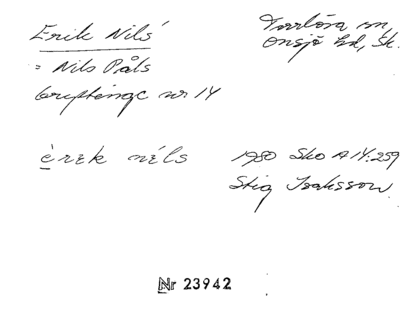 Erik Nils'
= Nils Påls
Torrlösa sn,
Onsjö hd, Sk.
nr 14
èrek néls
1980 Sko A 14:259
Stig Isaksson
Nr 23942